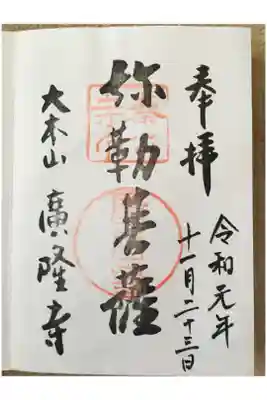 奉拝
令和元年
十一月二十三日
弥勒菩薩
大本山 廣隆寺